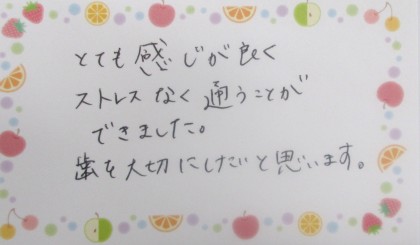 とても感じが良く
ストレスなく通うことが
できました。
歯を大切にしたいと思います。